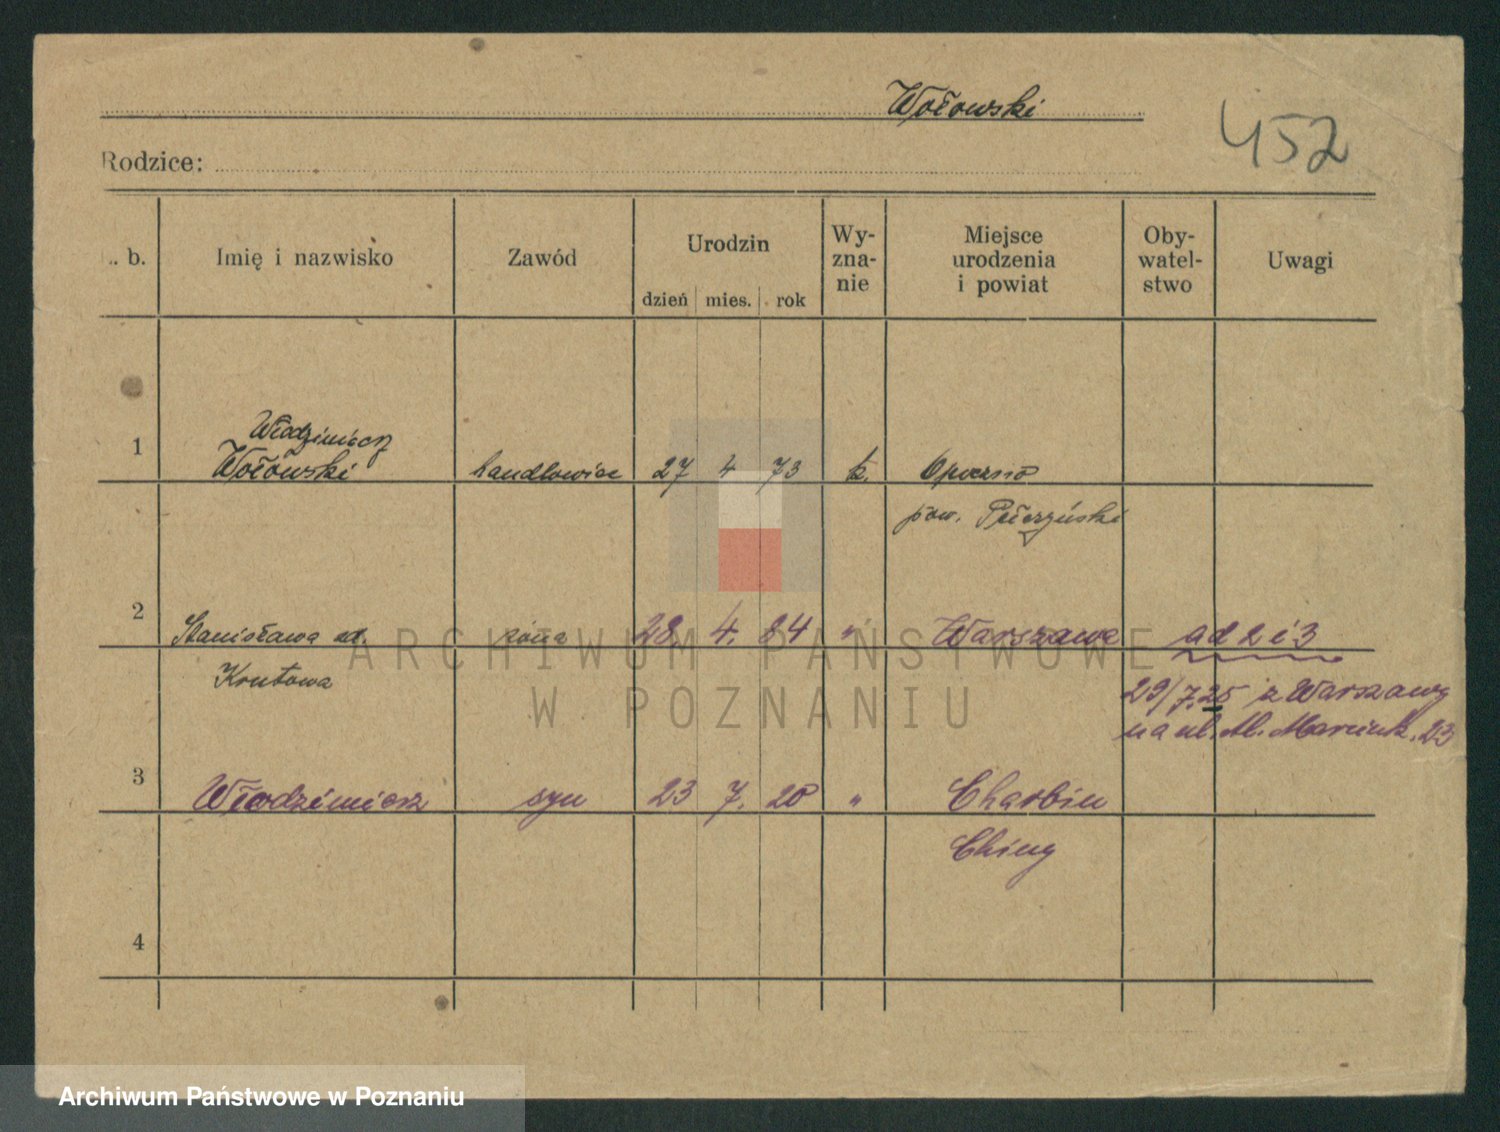 Wołowski
452
Rodzice:
L. b. Imię i nazwisko Zawód Urodzin dzień mies. rok Wy-zna-nie Miejsce urodzenia i powiat Oby-watel-stwo Uwagi
Włodzimierz
1 Wołowski handlowiec 27 4 73 k. Opoczno
pow.
2 Stanisława żona 28. 4. 84 " Warszawa ad 2 i 3
Krutowa 29/7.25 z Warszawy
na ul. Marcink. 23
3 Włodzimierz syn 23 7. 20 " Charbin
Chiny
4
ARCHIWUM PAŃSTWOWE
W POZNANIU
Archiwum Państwowe w Poznaniu